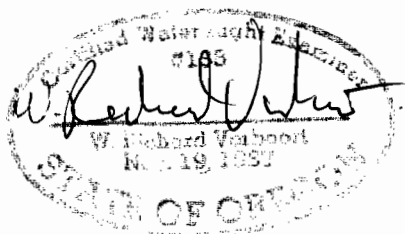 Certified Water Right Examiner
#183
W. Richard
W. Richard Verboort
19 1987
STATE OF OREGON